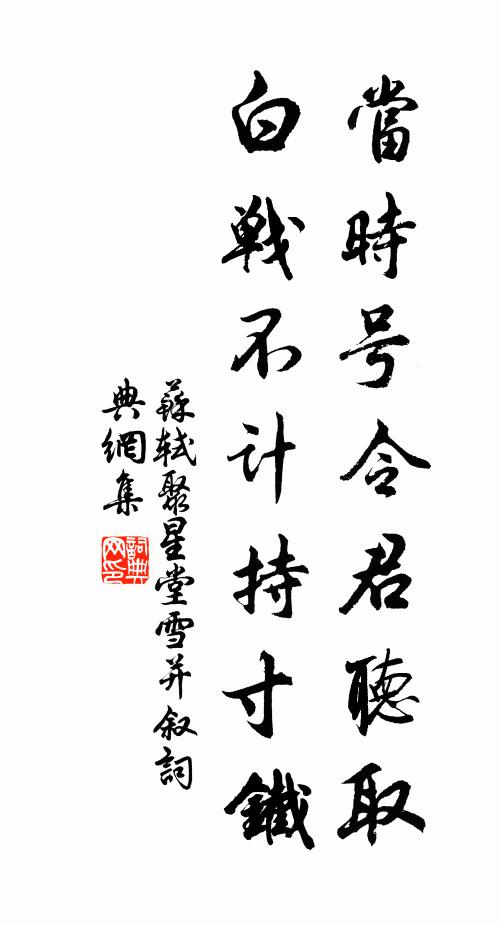 當時号令君聽取
白戦不计持寸鐵
蘇軾聚星堂雪并叙詞
典網集
詞典
网印